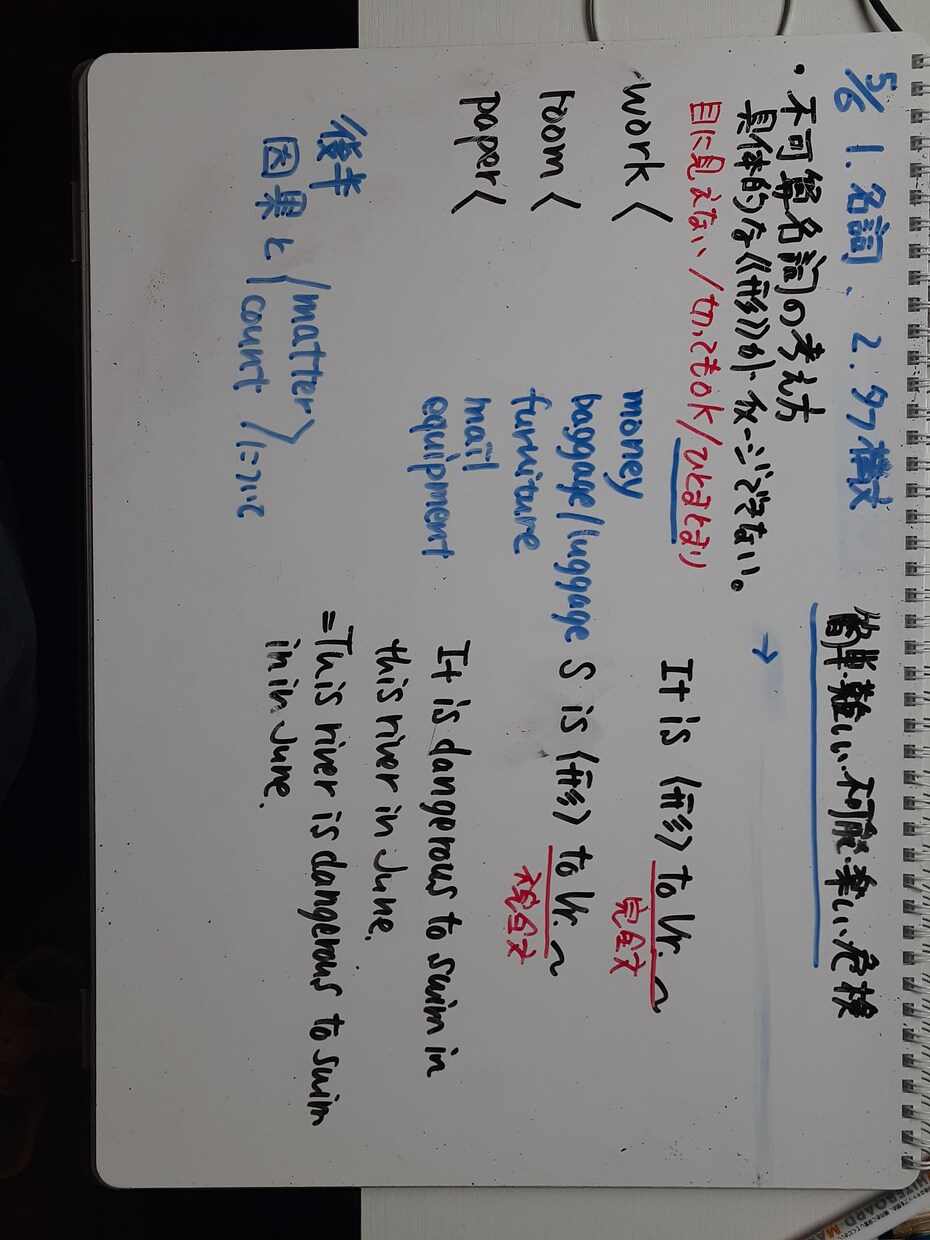 5/6 1. 名詞、 2. タフ構文
・不可算名詞の考え方
具体的な《形》がイメージできない。
目に見えない/切ってもok/ひとまとまり
work <
room <
paper <
money
baggage/luggage
furniture
mail
equipment
後半
因果と〈matter〉
count について
簡単、難しい、不可能、楽しい、危検
→
It is 〈形〉 to Vr. ~
完全文
S is 〈形〉 to Vr. ~
不完全文
It is dangerous to swim in
this river in June.
=This river is dangerous to swim
in in June.
WHITEBOARD MA